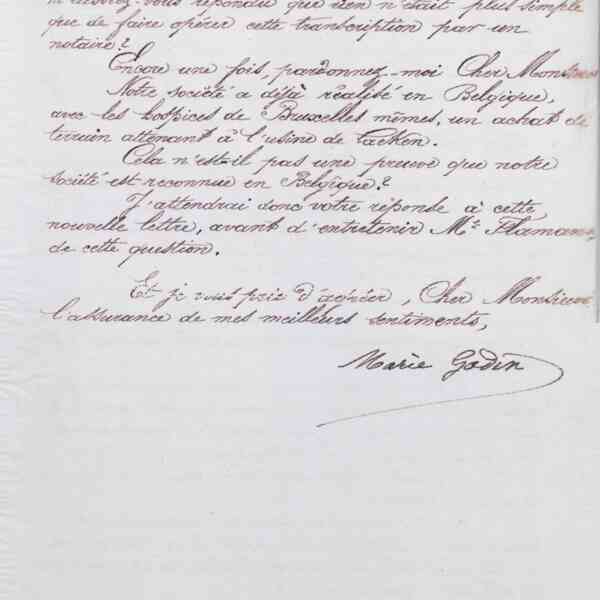 répondu que rien n'était plus simple
que de faire opérer cette transcription par un
notaire?
Encore une fois, pardonnez-moi Cher Monsieur
Notre société a déjà réalisé en Belgique,
avec les hospices de Bruxelles mêmes, un achat de
terrain attenant à l'usine de Laeken.
Cela n'est-il pas une preuve que notre
société est reconnue en Belgique?
J'attendrai donc votre réponse à cette
nouvelle lettre, avant d'entretenir Mr. Flamant
de cette question.
Et je vous prie d'agréer, Cher Monsieur
l'assurance de mes meilleurs sentiments,
Marie Godin